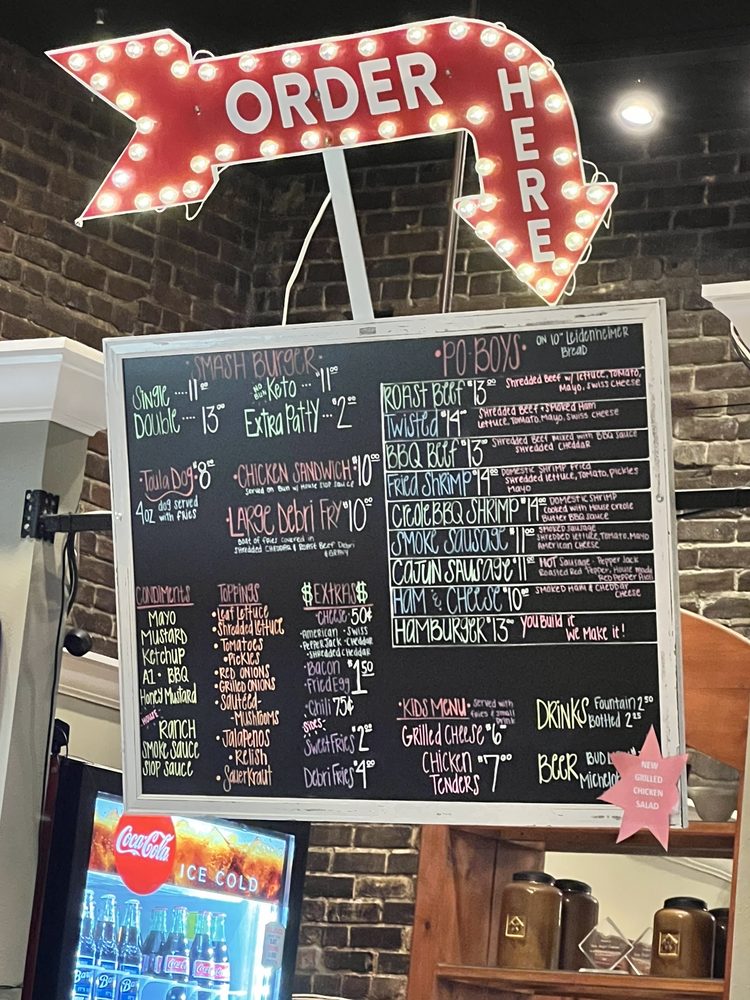 ORDER
HERE
SMASH BURGER
Single ---- 11⁰⁰
Double --- 13⁰⁰
NO BUN Keto --- $11⁰⁰
Extra Patty --- $2⁰⁰
Toula Dog $8⁰⁰
4oz dog served
with fries
CHICKEN SANDWICH $10⁰⁰
Served on Bun w/ House Slop Sauce
LARGE Debri FRY $10⁰⁰
Boat of fries covered in
Shredded CHEDDAR & Roast Beef Debri
& GRAVY
PO-BOYS
ON 10" Leidenheimer
Bread
ROAST BEEF $13⁰⁰ Shredded Beef w/ lettuce, TOMATO,
Mayo, SWISS CHEESE
Twisted $14⁰⁰ Shredded Beef & Smoked Ham
Lettuce, Tomato, Mayo, SWISS CHEESE
BBQ BEEF $13⁰⁰ Shredded Beef mixed with BBQ sauce
Shredded CHEDDAR
Fried SHRIMP $14⁰⁰ DOMESTIC SHRIMP fried
SHREDDED lettuce, Tomato, Pickles
Mayo
Creole BBQ SHRIMP $14⁰⁰ DOMESTIC SHRIMP
Cooked with House Creole
Butter BBQ Sauce
SMOKE SAUSAGE $11⁰⁰ SMOKED SAUSAGE
SHREDDED lettuce, Tomato, Mayo
AMERICAN CHEESE
CAJUN SAUSAGE $11⁰⁰ HOT SAUSAGE - PepperJack
Roasted Red Pepper, House made
Red Pepper Aioli
HAM & CHEESE $10⁰⁰ SMOKED HAM & CHEDDAR
CHEESE
HAMBURGER $13⁰⁰ YOU Build it
We Make it!
CONDIMENTS
MAYO
MUSTARD
KETCHUP
A1 - BBQ
Honey Mustard
RANCH
SMOKE SAUCE
SLOP SAUCE
TOPPINGS
• Leaf Lettuce
• Shredded lettuce
• Tomatoes
• PICKLES
• RED ONIONS
• GRILLED ONIONS
• SAUTÉED
- MUSHROOMS
• Jalapenos
• Relish
• SauerKraut
$EXTRAS$
• CHEESE • 50¢
• American • Swiss
• Pepper Jack • Cheddar
• SHREDDED CHEDDAR
• Bacon
• Fried Egg $1⁵⁰
• Chili 75¢
SIDES:
Sweet Fries $2⁰⁰
Debri Fries $4⁰⁰
• KIDS MENU • Served with
fries & small
Drink
Grilled CHEESE $6⁰⁰
CHICKEN
TENDERS $7⁰⁰
DRINKS Fountain 2⁵⁰
Bottled 2²⁵
BEER
NEW
GRILLED
CHICKEN
SALAD
Coca-Cola
ICE COLD